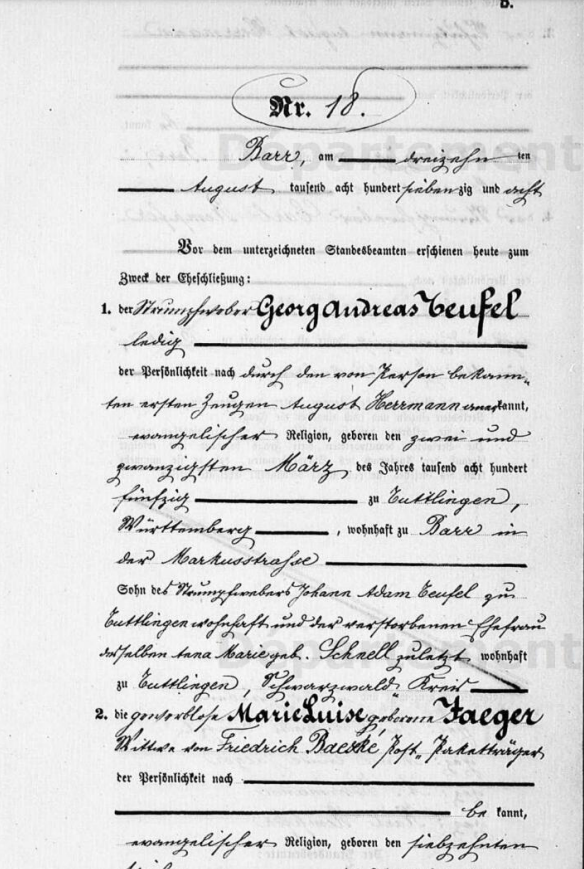 B.
Nr. 18.
Barr, am dreizehn ten
August tausend acht hundert siebenzig und acht
Vor dem unterzeichneten Standesbeamten erschienen heute zum
Zweck der Eheschließung:
1. der Strumpfweber Georg Andreas Teufel
ledig
der Persönlichkeit nach durch den von Person bekann-
ten ersten Zeugen August Herrmann anerkannt,
evangelischer Religion, geboren den zwei und
zwanzigsten März des Jahres tausend acht hundert
fünfzig zu Tuttlingen,
Württemberg, wohnhaft zu Barr in
der Markusstrasse
Sohn des Strumpfwebers Johann Adam Teufel zu
Tuttlingen wohnhaft und der verstorbenen Ehefrau
desselben Anna Marie geb. Schnell zuletzt wohnhaft
zu Tuttlingen, Schwarzwald Kreis
2. die gewerblose Marie Luise geborene Jaeger
Wittwe von Friedrich Baeské Post-Paketträger
der Persönlichkeit nach
be kannt,
evangelischer Religion, geboren den siebzehnten
Département
Département